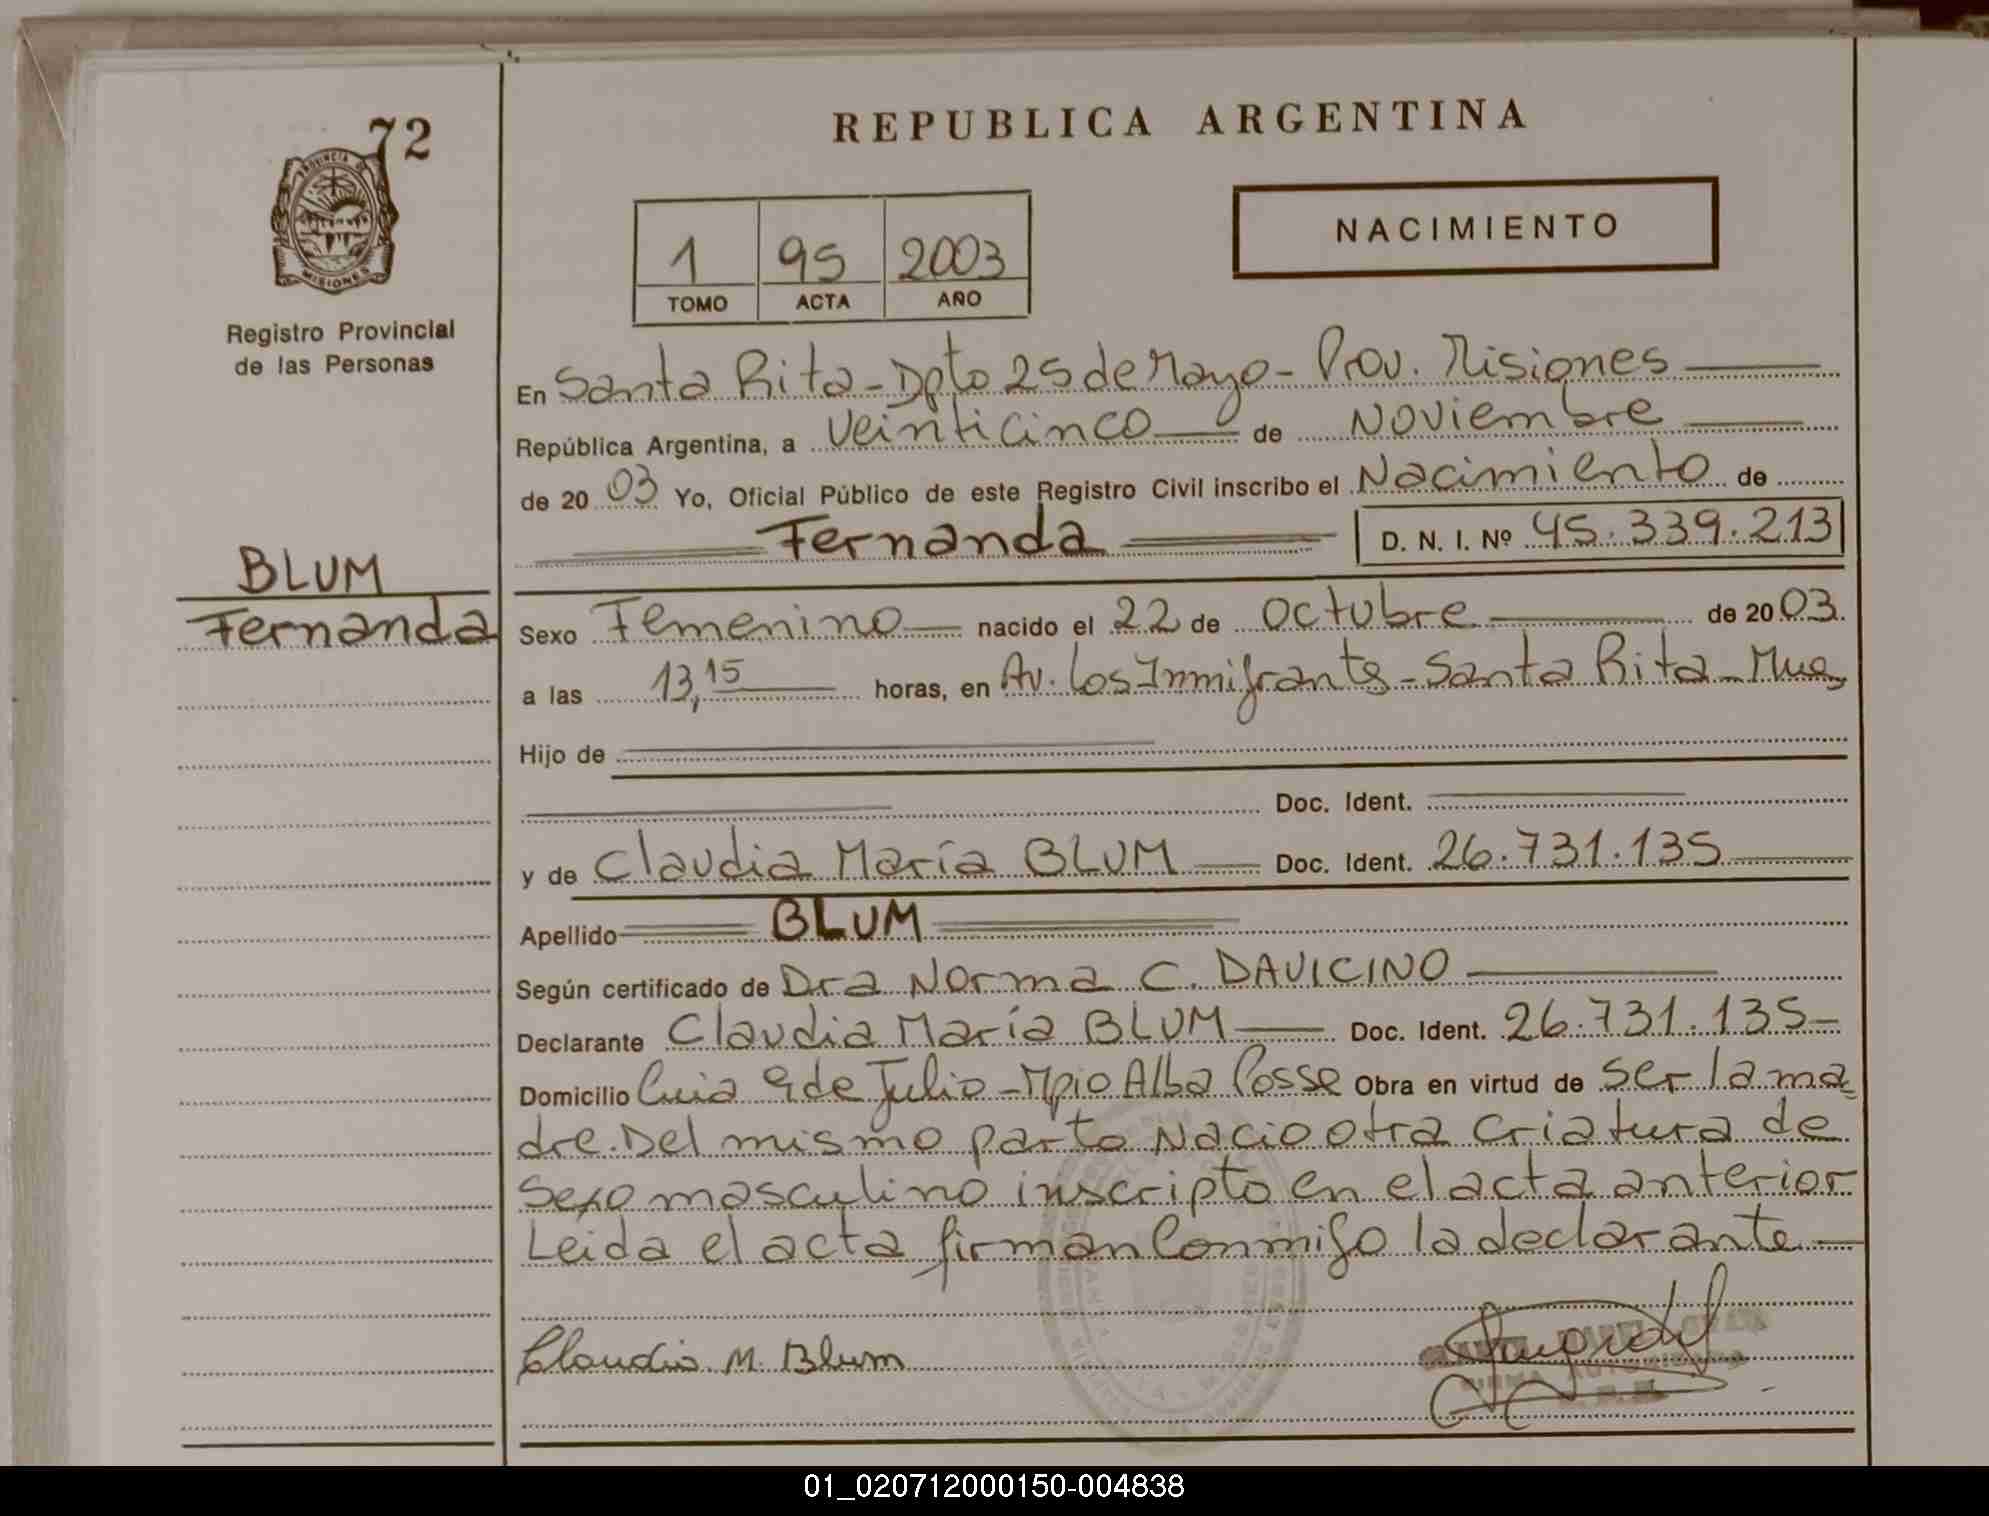 72
PROVINCIA DE
MISIONES
Registro Provincial
de las Personas
REPUBLICA ARGENTINA
NACIMIENTO
1 95 2003
TOMO ACTA AÑO
En Santa Rita - Dpto 25 de Mayo - Prov. Misiones
República Argentina, a veinticinco de Noviembre
de 2003 Yo, Oficial Público de este Registro Civil inscribo el Nacimiento de
Fernanda D. N. I. Nº 45.339.213
BLUM
Fernanda
Sexo Femenino nacido el 22 de octubre de 2003.
a las 13,15 horas, en Av. Los Inmigrantes - Santa Rita - Mnes
Hijo de
Doc. Ident.
y de Claudia María BLUM Doc. Ident. 26.731.135
Apellido BLUM
Según certificado de Dra Norma C. DAVICINO
Declarante Claudia María BLUM Doc. Ident. 26.731.135
Domicilio 9 de Julio - Mpio Alba Posse Obra en virtud de ser la ma=
dre. Del mismo parto Nacio otra criatura de
sexo masculino inscripto en el acta anterior
Leida el acta firman Conmigo la declarante
Claudia M. Blum
01_020712000150-004838